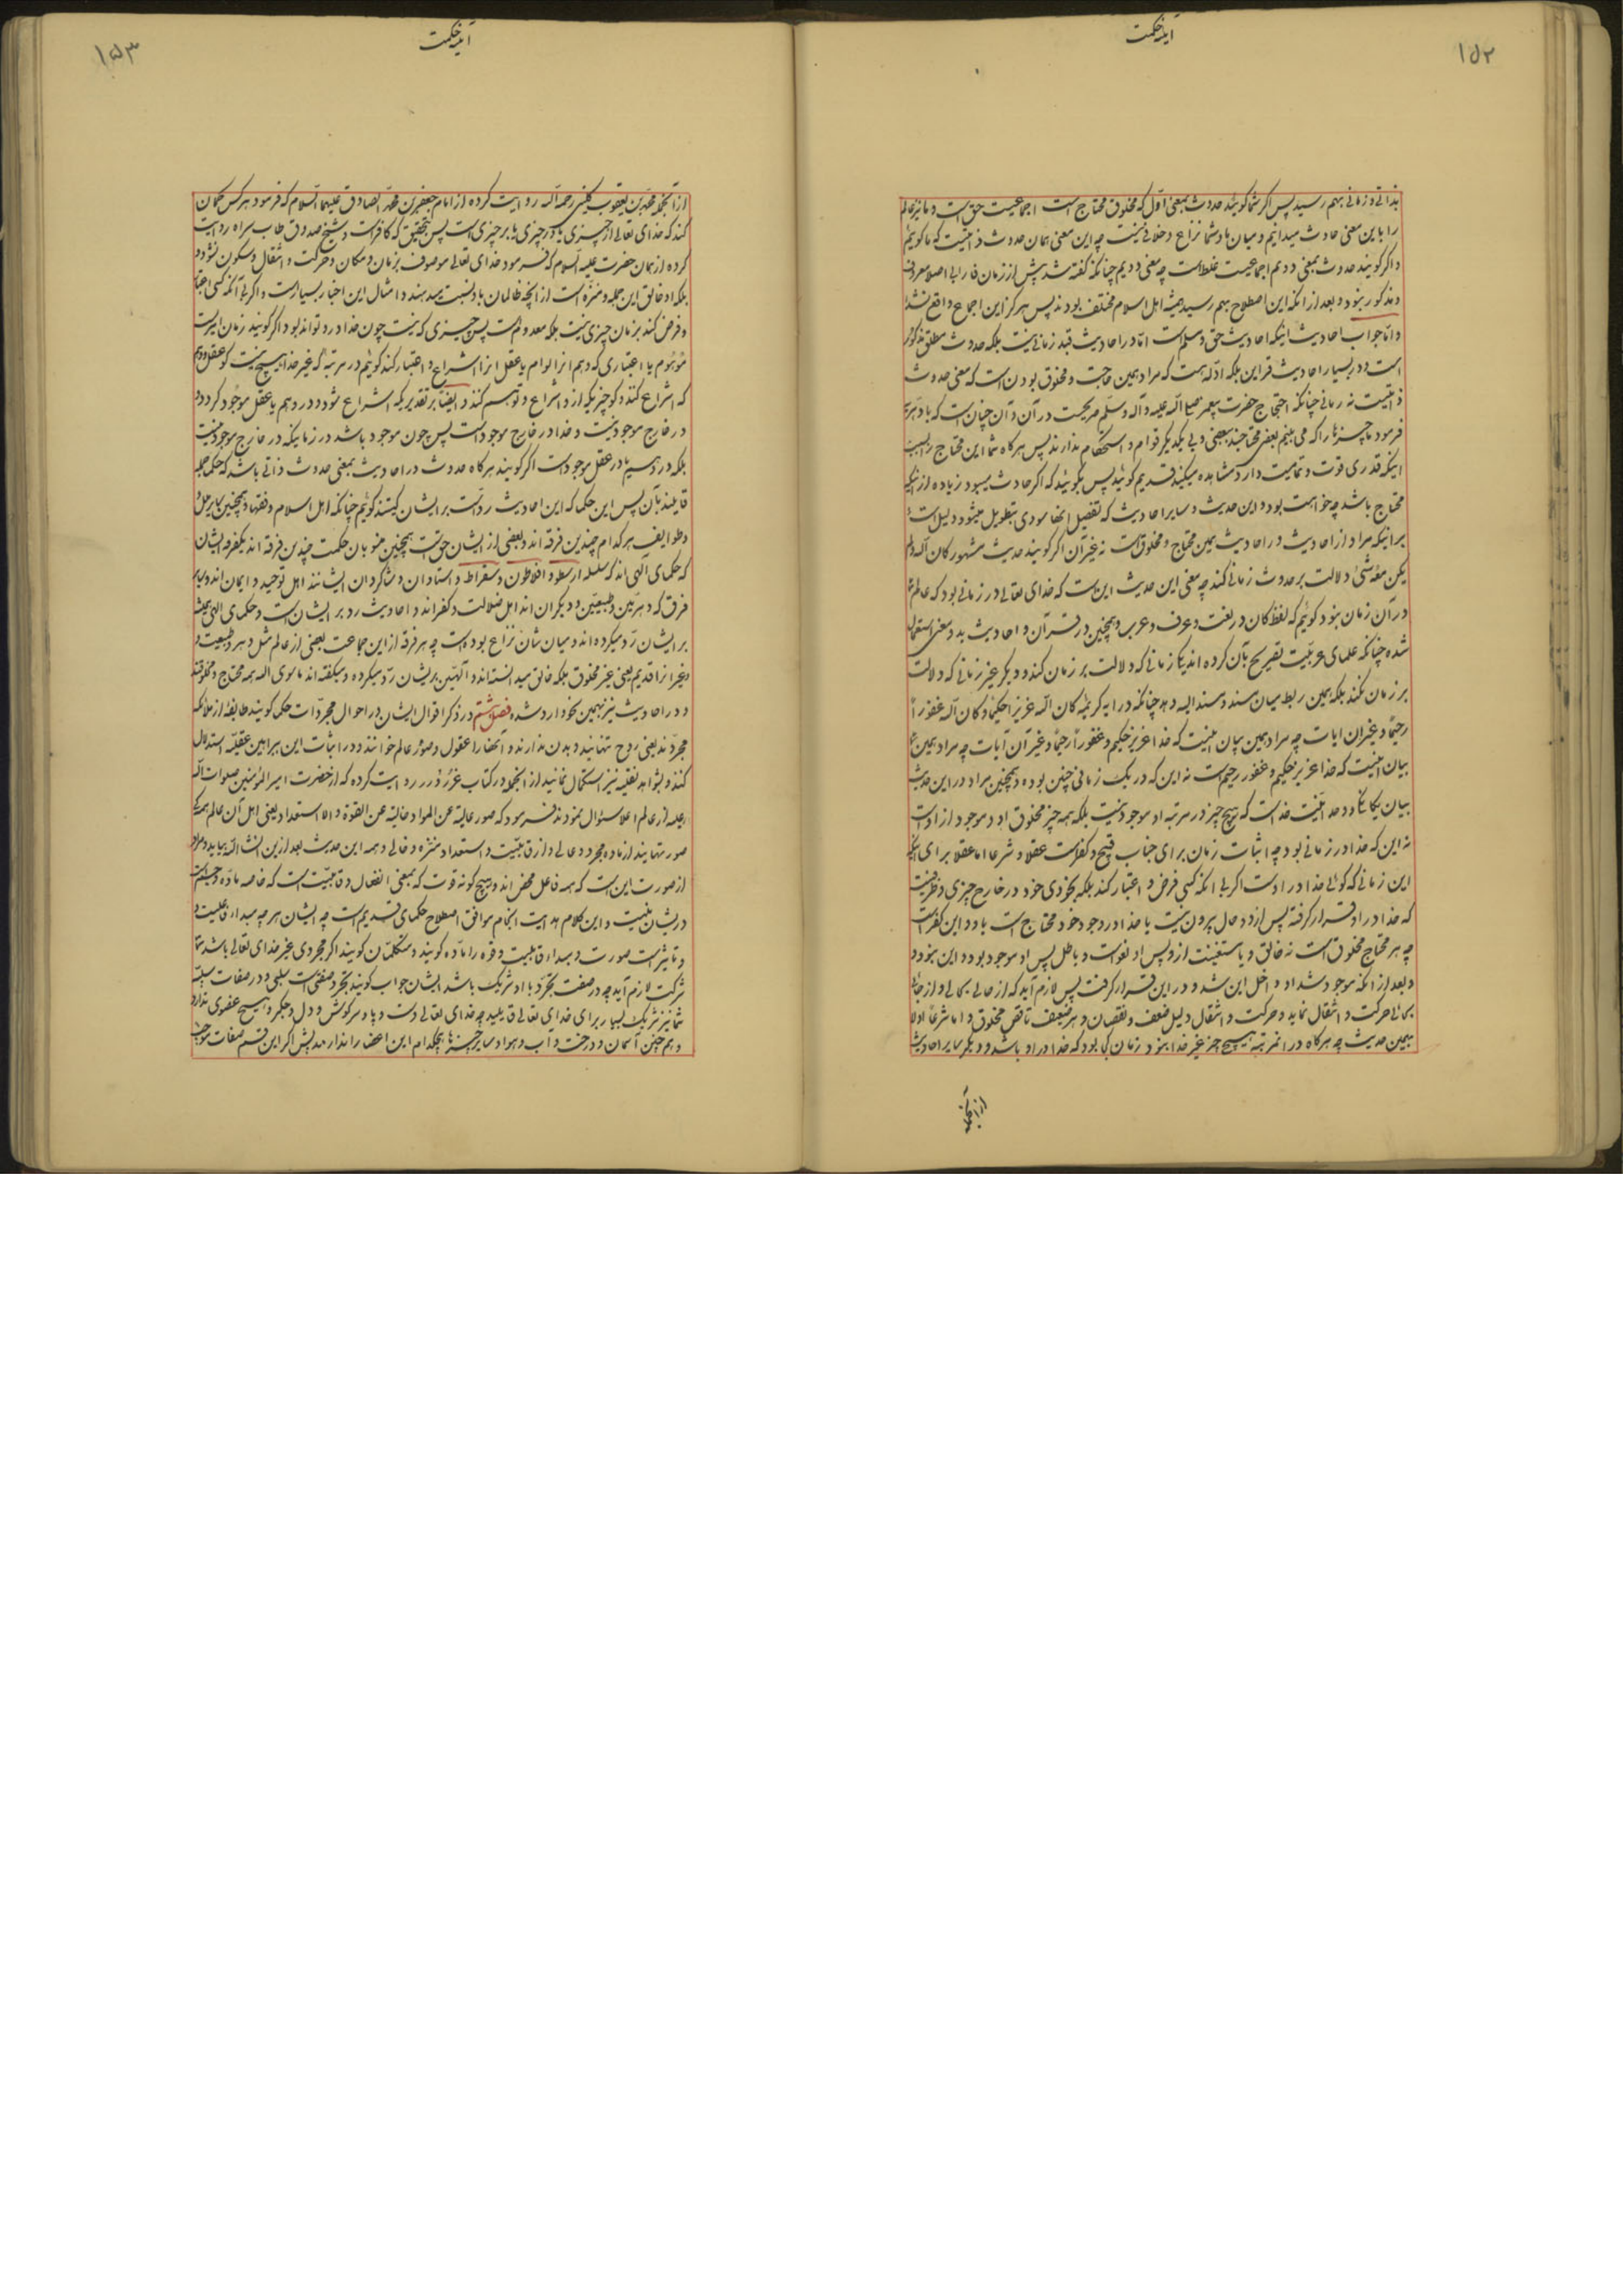 ١٥٢
آینه حکمت
بذاتی و زمانی بهم رسید پس اگر شما گویید حدوث بمعنی اول که مخلوق محتاج است اجماعیست حق است و ما نیز عالم
را باین معنی حادث میدانیم و میان ما و شما نزاع و خلافی نیست چه این معنی همان حدوث ذاتیست که ما گوییم
و اگر گویند حدوث بمعنی دویم اجماعیست غلط است چه معنی دویم چنانکه گفته شد پیش از زمان فارابی اصلا معروف
و مذکور نبود و بعد از آنکه این اصطلاح بهم رسید همیشه اهل اسلام مختلف بودند پس هرگز این اجماع واقع نشد
و اما جواب احادیث اینکه احادیث حق و مسلم است اما در احادیث قید زمانی نیست بلکه حدوث مطلق مذکور
است و در بسیار احادیث قراین بلکه ادله هست که مراد همین حاجت و مخلوق بودن است که معنی حدوث
ذاتیست نه زمانی چنانکه احتجاج حضرت پیغمبر صلی الله علیه و آله و سلم صریحست در آن و آن چنان است که با دهریه
فرمود ما چیزها را که می بینیم بعضی محتاجند ببعضی و بی یکدیگر قوام و استحکام ندارند پس هرگاه شما این محتاج را بسبب
اینکه قدری قوت و تمامیت دارد مشاهده میکنید قدیم گویید پس بگویید که اگر حادث میبود زیاده از اینکه
محتاج باشد چه خواست بود و این حدیث و سایر احادیث که تفصیل آنها مودی بتطویل میشود دلیل است
بر اینکه مراد از احادیث در احادیث همین محتاج و مخلوق است نه غیر آن اگر گویند حدیث مشهور کان الله و لم
یکن معه شیء دلالت بر حدوث زمانی کند چه معنی این حدیث این است که خدای تعالی در زمانی بود که عالم
در آن زمان نبود گوییم که لفظ کان در لغت و عرف و عرب و همچنین در قرآن و احادیث بدو معنی استعمال
شده چنانکه علمای عربیت تصریح بآن کرده اند یکی زمانی که دلالت بر زمان کند و دیگر غیر زمانی که دلالت
بر زمان نکند بلکه همین ربط میان مسند و مسند الیه دهد چنانکه در آیه کریمه کان الله عزیزا حکیما و کان الله غفورا
رحیما و غیر آن آیات چه مراد همین بیان اینست که خدا عزیز حکیم و غفورا رحیما و غیر آن آیات چه مراد همین
بیان اینست که خدا عزیز حکیم و غفور رحیم است نه این که در یک زمانی چنین بوده و همچنین مراد در این حدیث
بیان یگانگی و وحدانیت خداست که هیچ چیز در مرتبه او موجود نیست بلکه همه چیز مخلوق او و موجود از اوست
نه این که خدا در زمانی بود چه اثبات زمان برای جناب قبیح و کفر است عقلا و شرعا اما عقلا برای اینکه
این زمانی که گویی خدا در اوست اگر بی آنکه کسی فرض و اعتبار کند بلکه بخودی خود در خارج چیزی و ظرفیست
که خدا در او قرار گرفته پس از دو حال بیرون نیست یا خدا در وجود خود محتاج است باو و این کفر است
چه هر محتاج مخلوق است نه خالق و یا مستغنیست از او پس او لغو است و باطل پس او موجود بود و این نبود
و بعد از آنکه موجود شد او داخل این شد و در این قرار گرفت پس لازم آید که از حالی بحالی و از جائی
بجائی حرکت و انتقال نماید و حرکت و انتقال دلیل ضعف و نقصان و هر ضعیف ناقص مخلوق و اما شرعا اولا
بهمین حدیث چه هرگاه در آنمرتبه هیچ چیز غیر خدا نبود زمان کی بود که خدا در او باشد و دیگر سایر احادیث
از آنجمله
١٥٣
آینه حکمت
از آنجمله محمد بن یعقوب کلینی رحمه الله روایت کرده از امام جعفر بن محمد الصادق علیهما السلام که فرمود هر کس گمان
کند که خدای تعالی از چیزی یا در چیزی یا بر چیزی است پس بتحقیق که کافر است و شیخ صدوق طاب ثراه روایت
کرده از همان حضرت علیه السلام که فرمود خدای تعالی موصوف بزمان و مکان و حرکت و انتقال و سکون نشود
بلکه او خالق این جمله و منزه است از آنچه ظالمان باو نسبت میدهند و امثال این اخبار بسیار است و اگر بی آنکه کسی اعتبار
و فرض کند بزمان چیزی نیست بلکه معدوم است پس چیزی که نیست چون خدا در او تواند بود و اگر گویند زمان امریست
موهوم یا اعتباری که وهم آنرا توهم یا عقل آنرا انتزاع و اعتبار کند گوییم در مرتبه که غیر خدا هیچ نیست کو عقل و وهم
که انتزاع کند و کو چیزیکه از او انتزاع و توهم کنند و ایضا بر تقدیریکه انتزاع شود در وهم یا عقل موجود گردد و
در خارج موجود نیست و خدا در خارج موجود است پس چون موجود باشد در زمانیکه در خارج موجود نیست
بلکه در وهم یا در عقل موجود است اگر گویند هرگاه حدوث در احادیث بمعنی حدوث ذاتی باشد که حکما جمله
قایلند بآن پس این حکما که این احادیث رد است بر ایشان کیستند گوییم چنانکه اهل اسلام و فقها و همچنین سایر ملل
و طوایف هر کدام چندین فرقه اند و بعضی از ایشان حق است همچنین منسوبان حکمت چندین فرقه اند یکفرقه ایشان
که حکمای الهی اند که سلسله ارسطو و افلاطون و سقراط و استادان و شاگردان ایشانند اهل توحید و ایمان اند و سایر
فرق که دهریین و طبیعیین و دیگران اند اهل ضلالت و کفراند و احادیث رد بر ایشان است و حکمای الهی همیشه
بر ایشان رد میکرده اند و میان شان نزاع بوده است چه هر فرقه از این جماعت بعضی از عالم مثل دهر و طبیعت و
غیر آنرا قدیم یعنی غیر مخلوق بلکه خالق میدانسته اند و الهیین بر ایشان رد میکرده و میگفته اند ما سوی الله همه محتاج و مخلوقند
و در احادیث نیز بهمین نحو وارد شده فصل ششم در ذکر اقوال ایشان در احوال مجردات حکما گویند طایفه از ملائکه
مجردند یعنی روح تنهایند و بدن ندارند و آنها را عقول و صور عالم خوانند و در اثبات این ببراهین عقلیه استدلال
کنند و بشواهد نقلیه نیز استکمال نمایند از آنجمله در کتاب غرر و درر روایت کرده که از حضرت امیر المؤمنین صلوات الله
علیه از عالم اعلا سئوال نمودند فرمود که صور عالیة عن المواد خالیة عن القوة و الاستعداد یعنی اهل آن عالم همه
صور تنهایند از ماده مجرد و عالی و از قابلیت و استعداد منزه و خالی و همه این حدیث بعد از این انشاءالله بیاید و مراد
از صورت این است که همه فاعل محض اند و هیچ گونه قوت که بمعنی انفعال و قابلیت است که خاصه ماده و جسم است
در ایشان نیست و این کلام هدایت انجام موافق اصطلاح حکمای قدیم است چه ایشان هر چه مبداء فاعلیت و
و تاثیر است صورت و مبداء قابلیت و قوه را ماده گویند و متکلمان گویند اگر مجردی غیر خدای تعالی باشد
شرکت لازم آید چه در صفت تجرد با او شریک باشد ایشان جواب گویند تجرد صفتی است سلبی و در صفات سلبیه
شما نیز شریک بسیار برای خدای تعالی قایلید چه خدای تعالی دست و پا و سر و گوش و دل و جگر و هیچ عضوی ندارد
و هم چنین آسمان و درخت و آب و هوا و سایر چیزها هیچکدام این اعضا را ندارند پس اگر این قسم صفات موجب